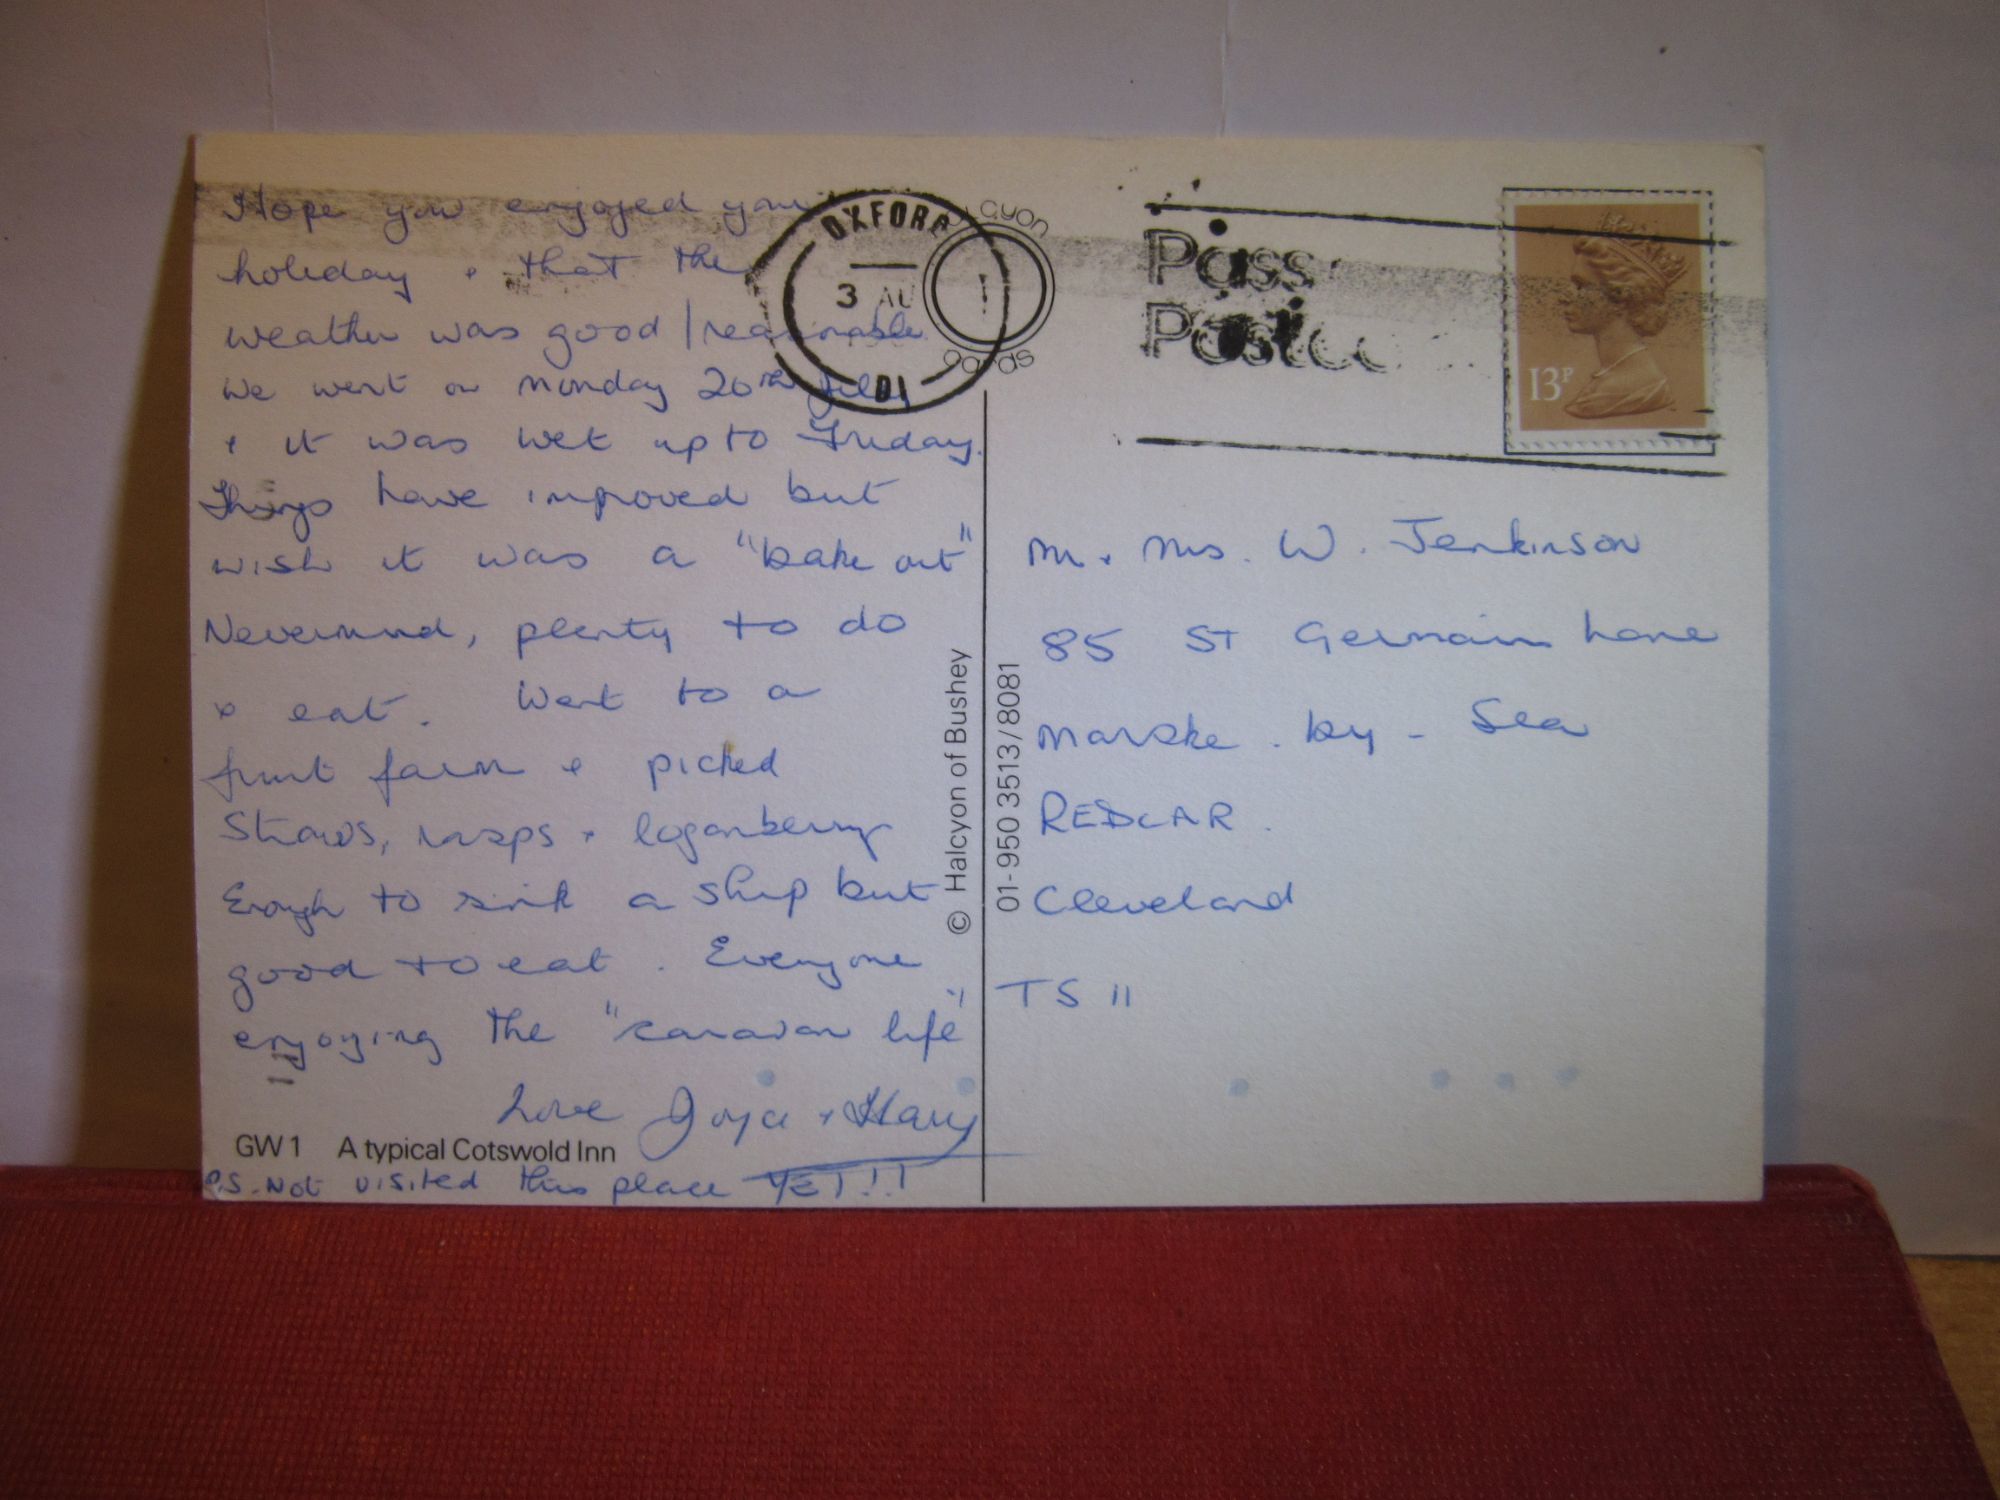 Hope you enjoyed your
holiday & that the
weather was good / reasonable
We went on Monday 20th July
& it was wet up to Friday.
Things have improved but
wish it was a "bake out"
Nevermind, plenty to do
& eat. Went to a
fruit farm & picked
Straws, rasps & loganberrys
Enough to sink a ship but
good to eat. Everyone
enjoying the "caravan life"
Love Joya & Harry
GW1 A typical Cotswold Inn
P.S. Not visited this place YET!!
OXFORD
3 AU
DI
Halcyon
Cards
© Halcyon of Bushey
01-950 3513/8081
Pass
13P
Mr & Mrs. W. Jenkinson
85 St Germain Lane
Marske - by - Sea
REDCAR.
Cleveland
TS 11